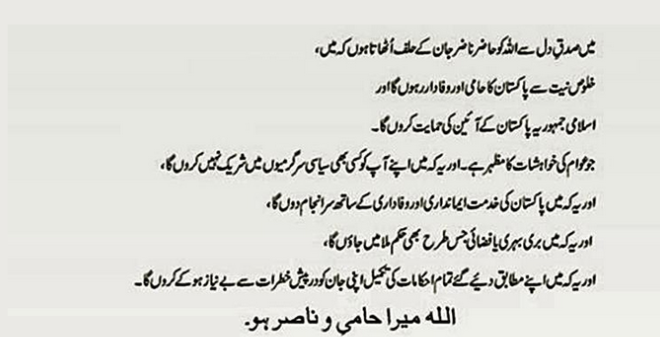 میں صدقِ دل سے اللہ کو حاضر ناضر جان کے حلف اُٹھاتا ہوں کہ میں،
خلوصِ نیت سے پاکستان کا حامی اور وفادار رہوں گا اور
اسلامی جمہوریہ پاکستان کے آئین کی حمایت کروں گا۔
جو عوام کی خواہشات کا مظہر ہے۔ اور یہ کہ میں اپنے آپ کو کسی بھی سیاسی سرگرمیوں میں شریک نہیں کروں گا،
اور یہ کہ میں پاکستان کی خدمت ایمانداری اور وفاداری کے ساتھ سرانجام دوں گا،
اور یہ کہ میں بری بہری یا فضائی جس طرح بھی حکم ملا میں جاؤں گا،
اور یہ کہ میں اپنے مطابق دئیے گئے تمام احکامات کی تکمیل اپنی جان کو درپیش خطرات سے بے نیاز ہو کے کروں گا۔
الله ميرا حامي و ناصر ہو۔